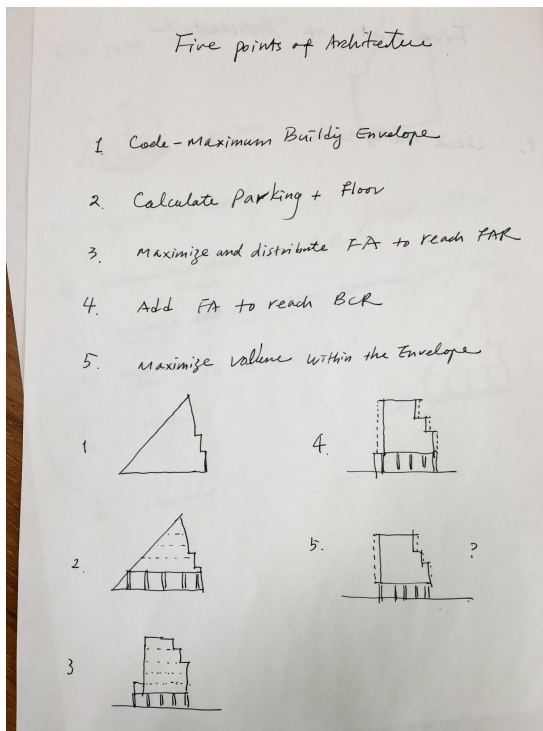 Five points of Architecture
1 Code-Maximum Buildig Envelope
2. Calculate Parking + Floor
3. Maximize and distribute FA to reach FAR
4. Add FA to reach BCR
5. Maximize volume within the Envelope
1
4.
2.
5. ?
3